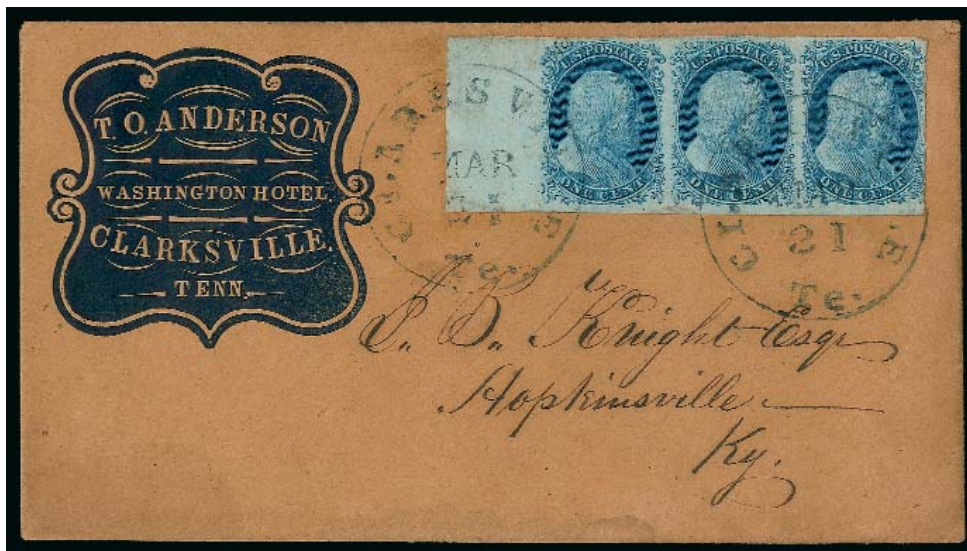 T. O. ANDERSON
WASHINGTON HOTEL,
CLARKSVILLE,
TENN.
U.S. POSTAGE
ONE CENT
U.S. POSTAGE
ONE CENT
U.S. POSTAGE
ONE CENT
MAR
21
Te.
21
Te.
Knight Esqr
Hopkinsville
Ky.